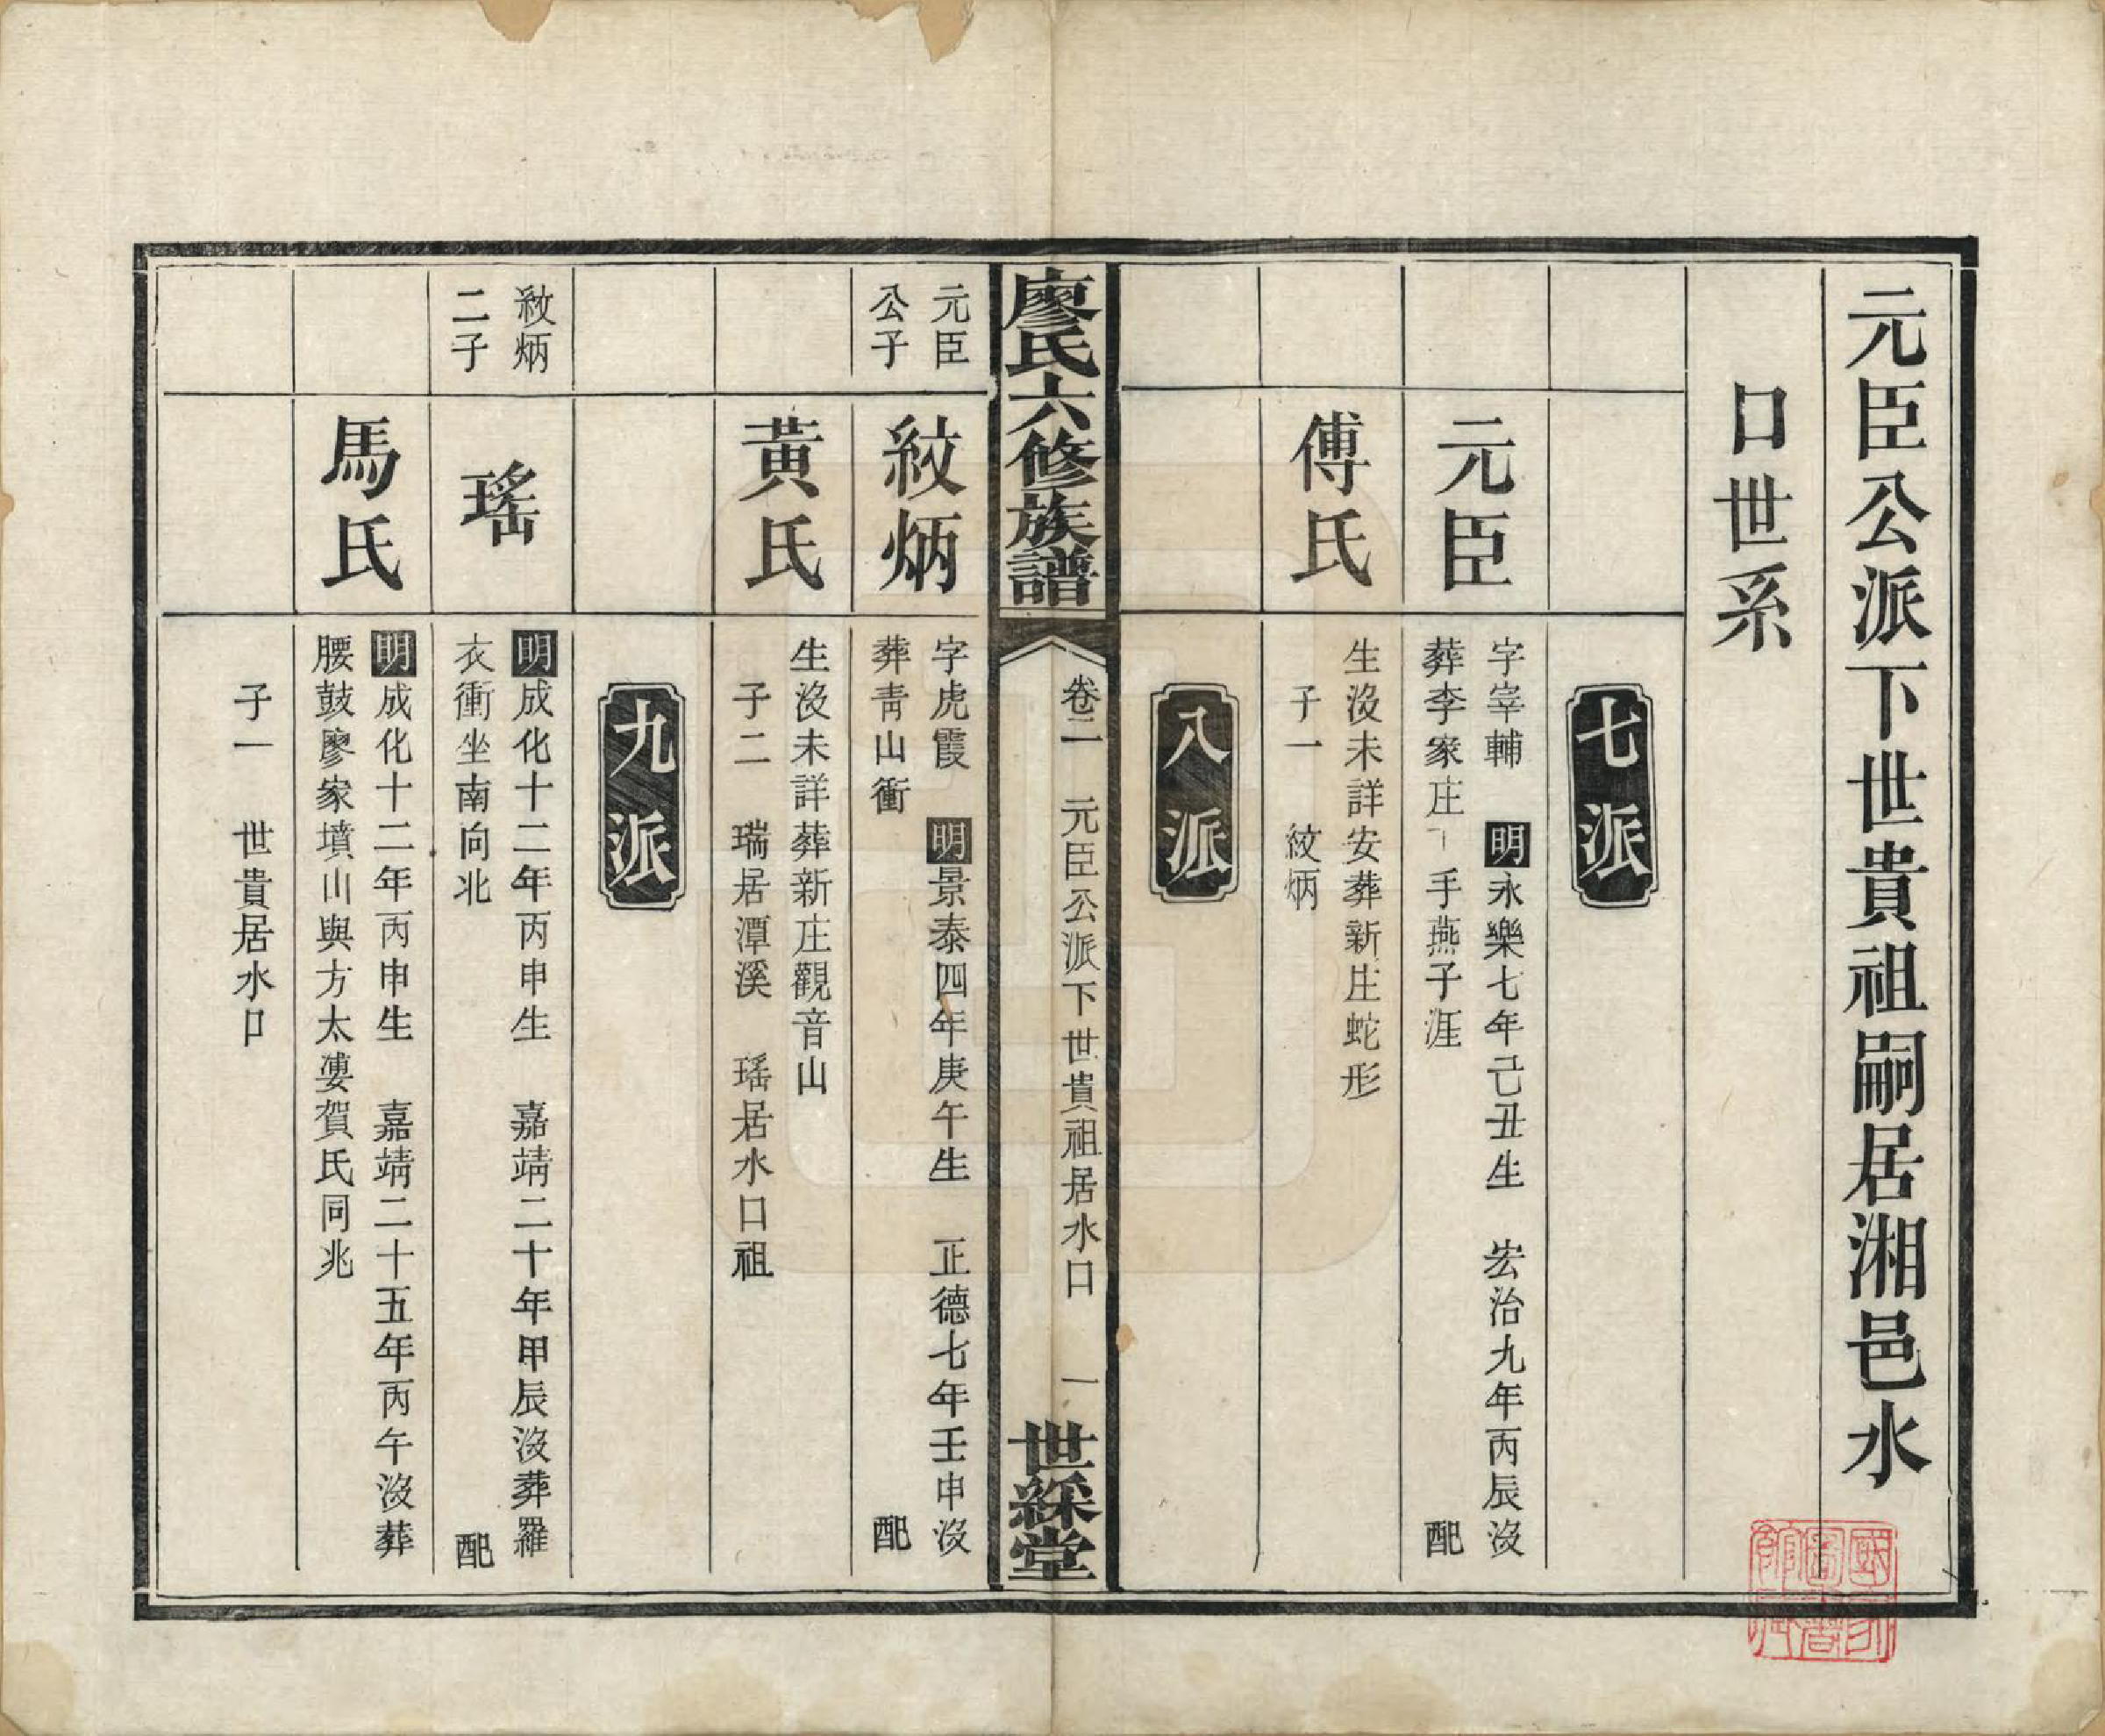 元臣公派下世貴祖嗣居湘邑水
口世系
七派
元臣
字宰輔　明永樂七年己丑生　宏治九年丙辰沒
葬李家庄丁手燕子涯　配
傅氏
生沒未詳安葬新庄蛇形
子一　紋炳
八派
廖氏六修族譜
卷二　元臣公派下世貴祖居水口　一
世綵堂
元臣
公子
紋炳
字虎霞　明景泰四年庚午生　正德七年壬申沒
葬靑山衝　配
黃氏
生沒未詳葬新庄觀音山
子二　瑞居潭溪　瑤居水口祖
九派
紋炳
二子
瑤
明成化十二年丙申生　嘉靖二十年甲辰沒葬羅
衣衝坐南向北　配
馬氏
明成化十二年丙申生　嘉靖二十五年丙午沒葬
腰鼓廖家墳山與方太婆賀氏同兆
子一　世貴居水口
國家
圖書
館藏